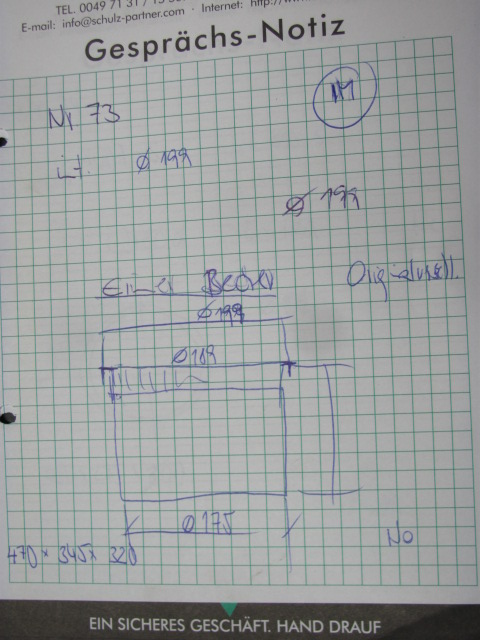 TEL. 0049 71 31 / 15
E-mail: info@schulz-partner.com · Internet: http://
Gesprächs-Notiz
Nr 73
int. Ø 199
Ø 199
Eimer
Ø 199
Ø 189
Ø 175
470 x 345 x 320
No
EIN SICHERES GESCHÄFT. HAND DRAUF